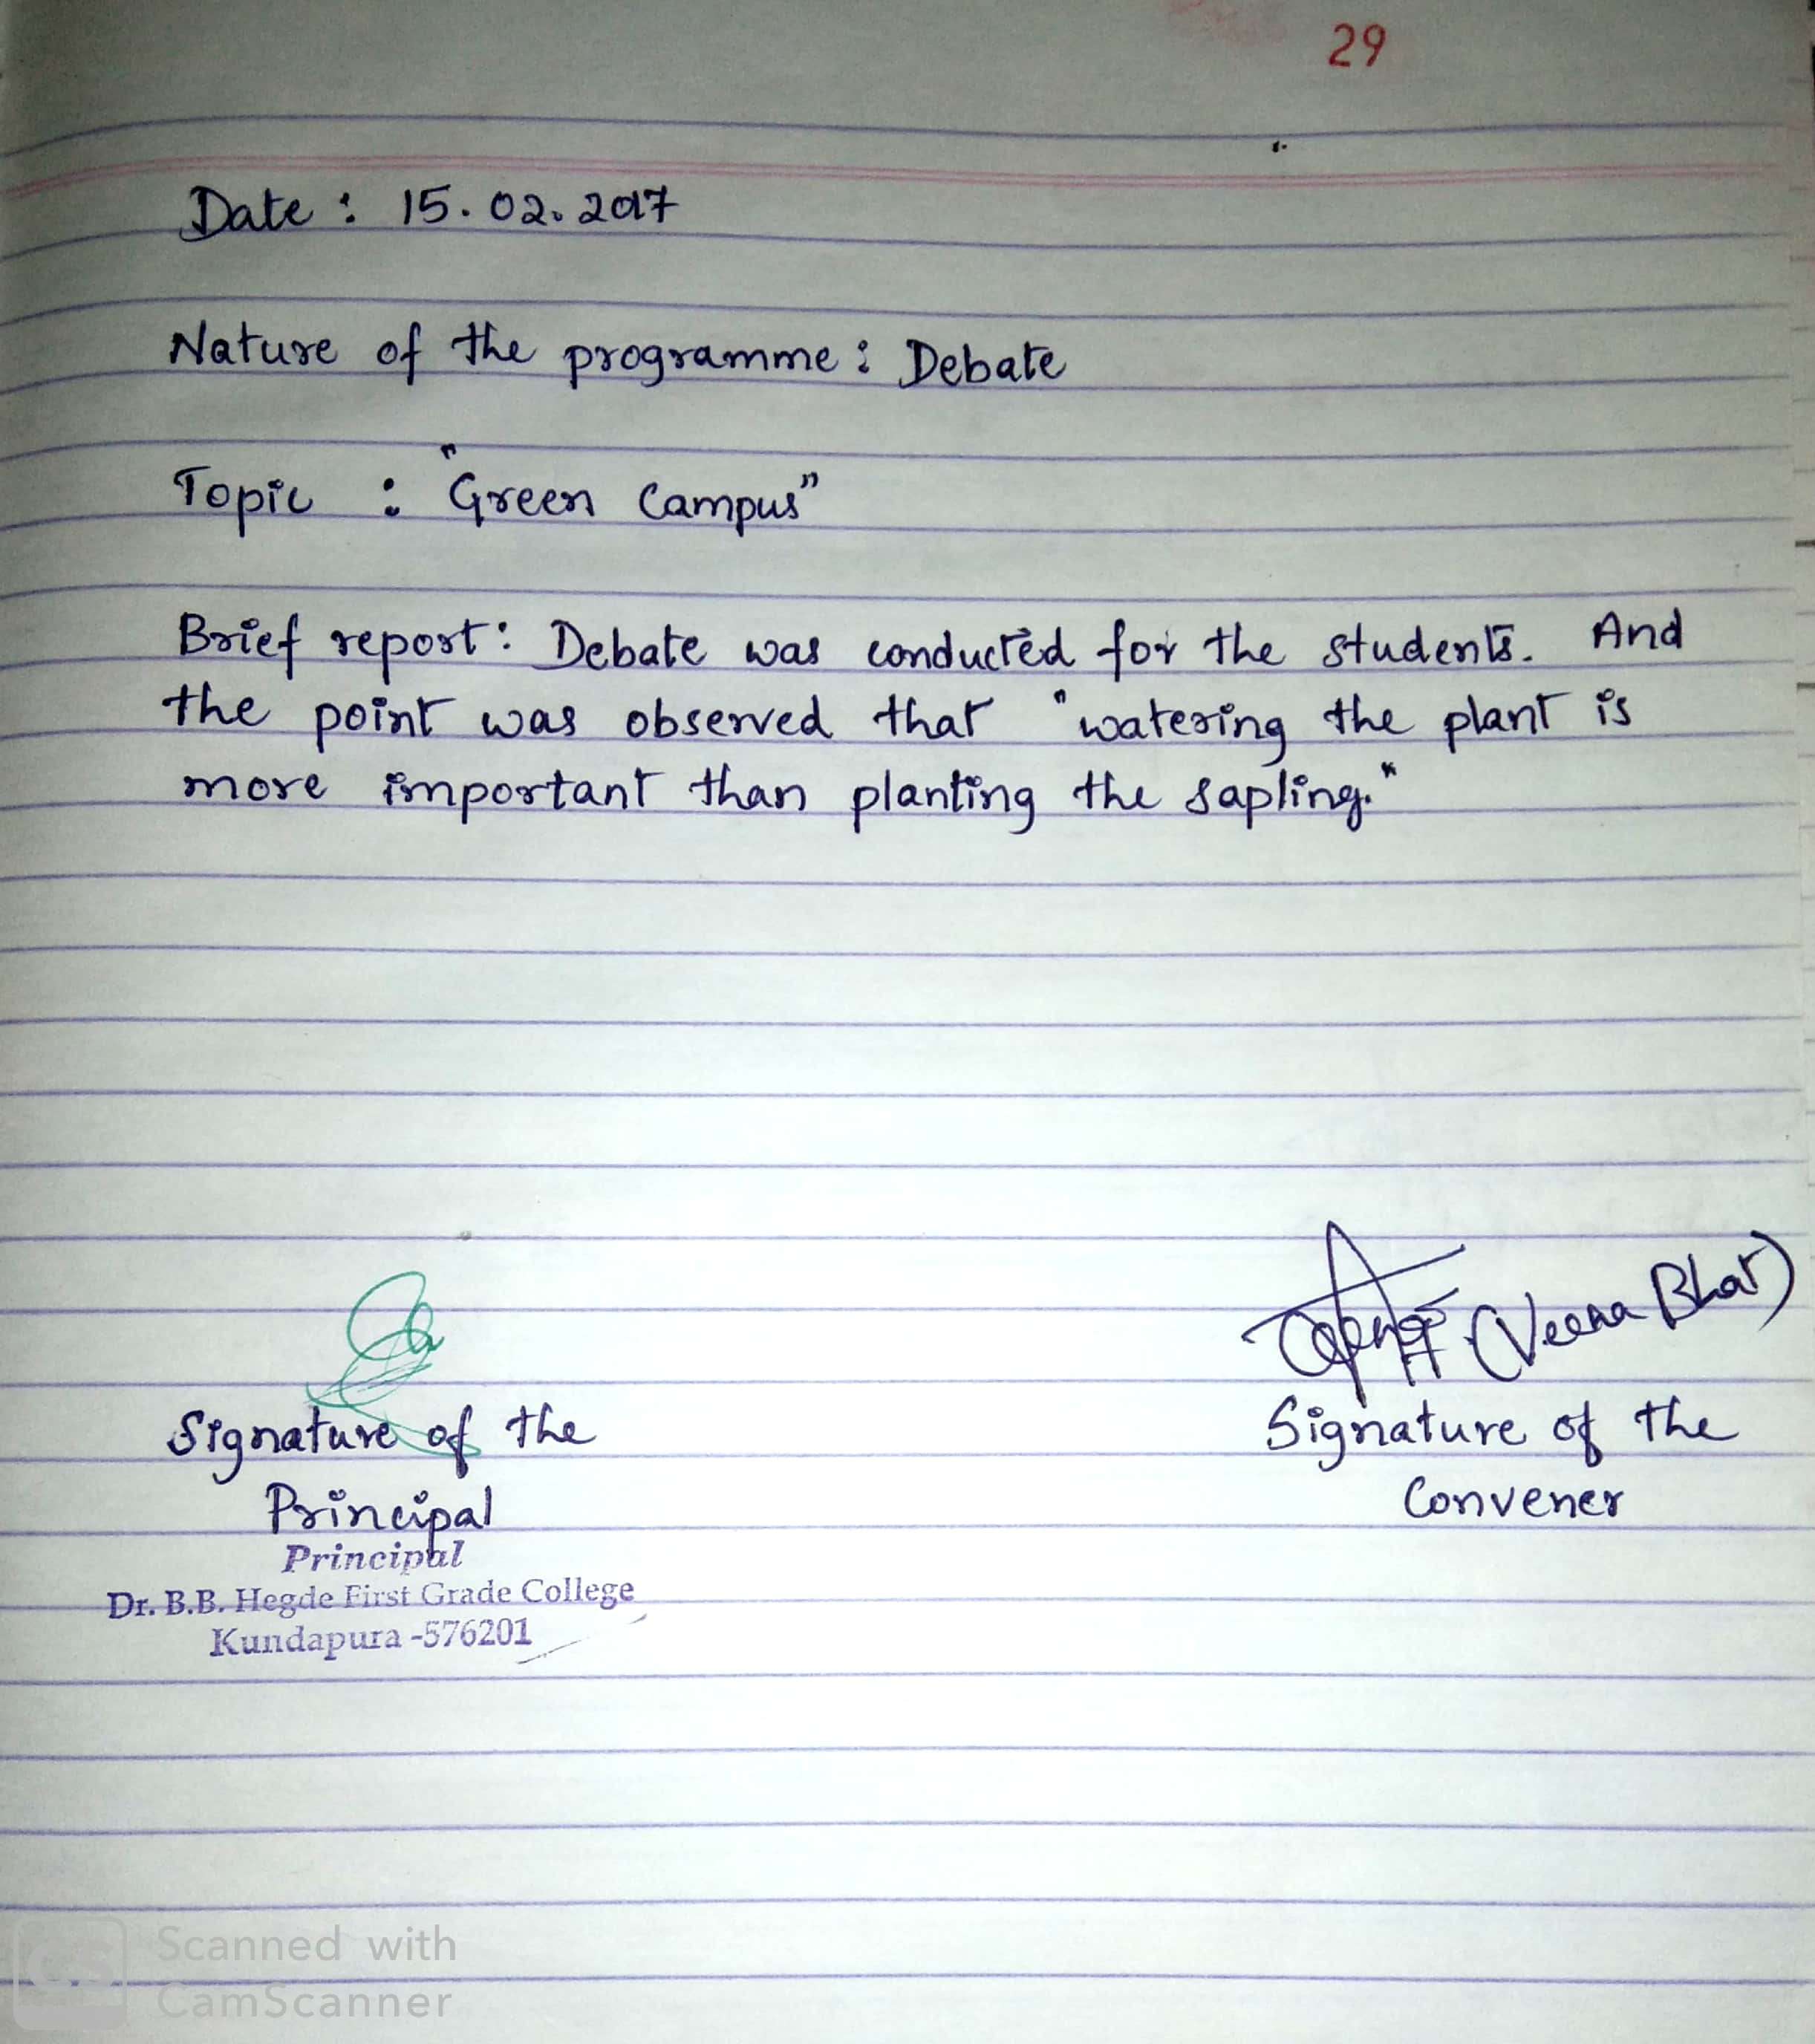 29
Date : 15.02.2017
Nature of the programme : Debate
Topic : "Green Campus"
Brief report : Debate was conducted for the students. And
the point was observed that "watering the plant is
more important than planting the sapling."
(Veena Bhat)
Signature of the
Principal
Signature of the
Convener
Principal
Dr. B.B. Hegde First Grade College
Kundapura -576201
CS Scanned with
CamScanner